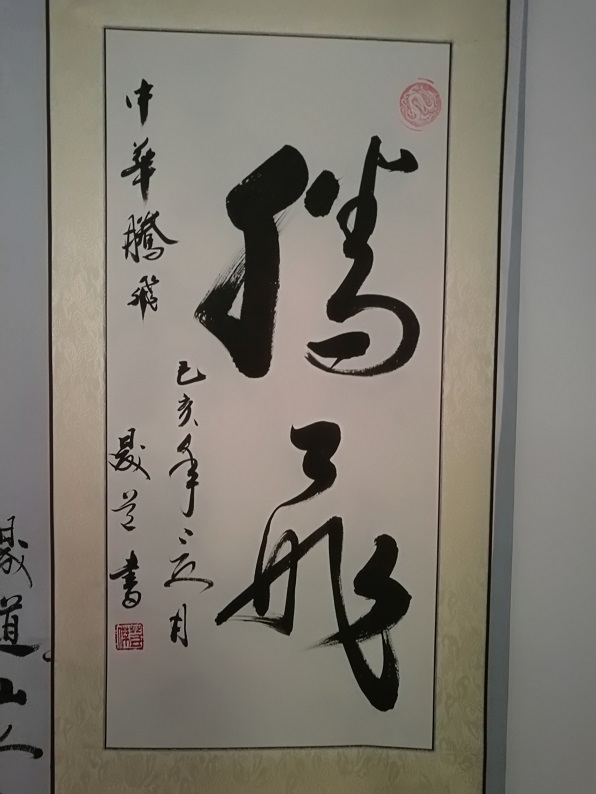 騰飛
中華騰飛
己亥年月
晟道書
晟道山人